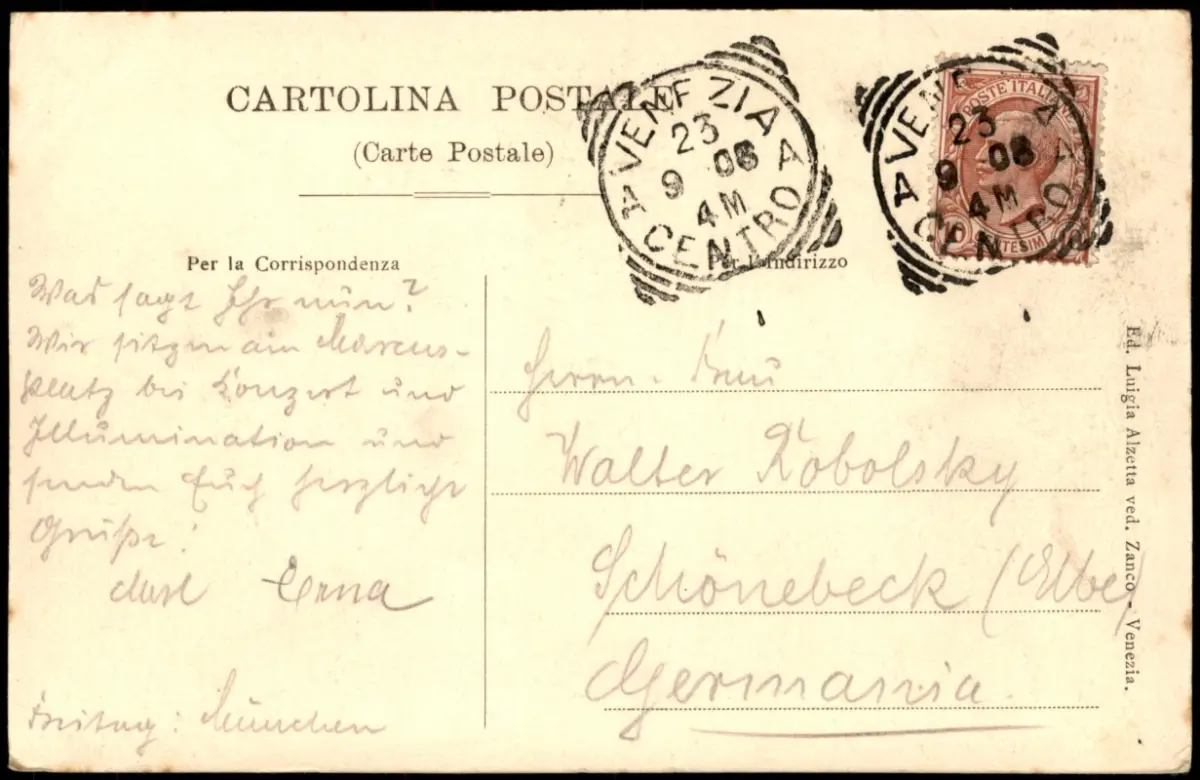 CARTOLINA POSTALE
(Carte Postale)
VENEZIA
23
9 06
4 M
CENTRO
VENEZIA
23
9 06
4 M
CENTRO
POSTE ITALIANE
10 CENTESIMI 10
Per la Corrispondenza
Per l'Indirizzo
Was sagt Ihr nun?
Wir sitzen am Marcus-
platz bei Konzert und
Illumination und
senden Euch herzliche
Grüße!
Erna
Freitag: München
Herrn. Frau
Walter Kobolsky
Schönebeck (Elbe)
Germania.
Ed. Luigia Alzetta ved. Zanco - Venezia.